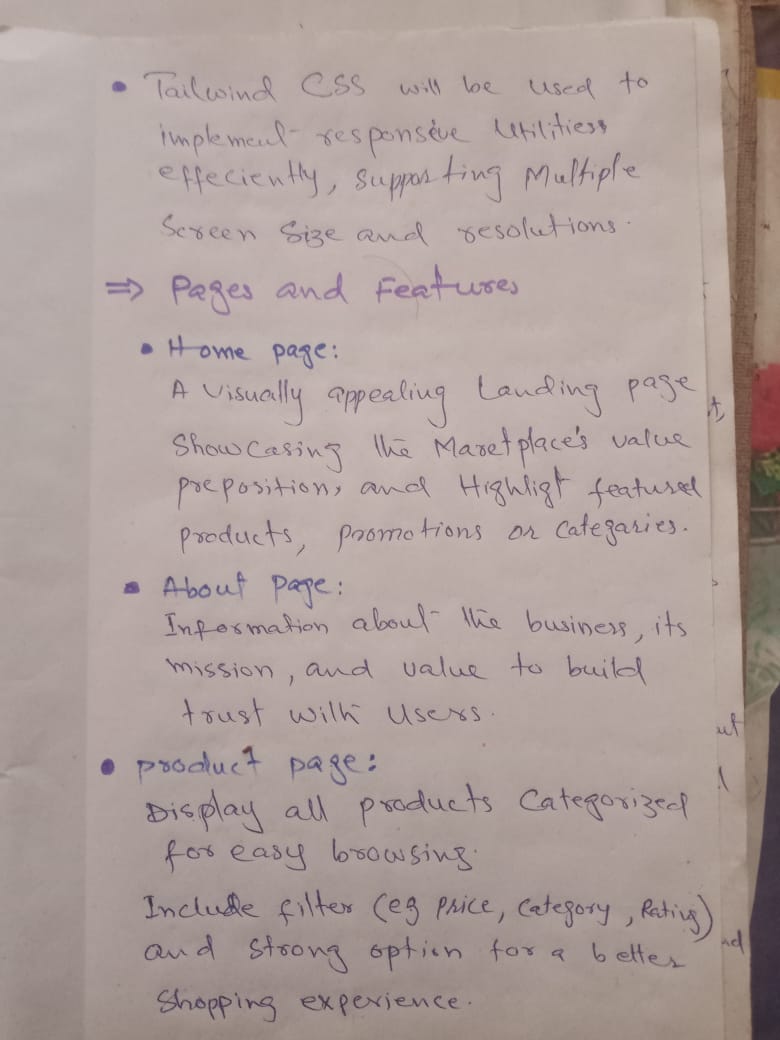 • Tailwind CSS will be used to
implement responsive Utilitiess
effeciently, supporting Multiple
Screen Size and resolutions.
⇒ Pages and Features
• Home page:
A Visually appealing Landing page
Showcasing the Maretplace's value
preposition, and Highligt featured
products, promotions or Categaries.
• About Page:
Information about the business, its
mission, and value to build
trust with Users.
• product page:
Display all products Categorized
for easy browsing.
Include filter (eg Price, Category, Rating)
and strong option for a better
Shopping experience.